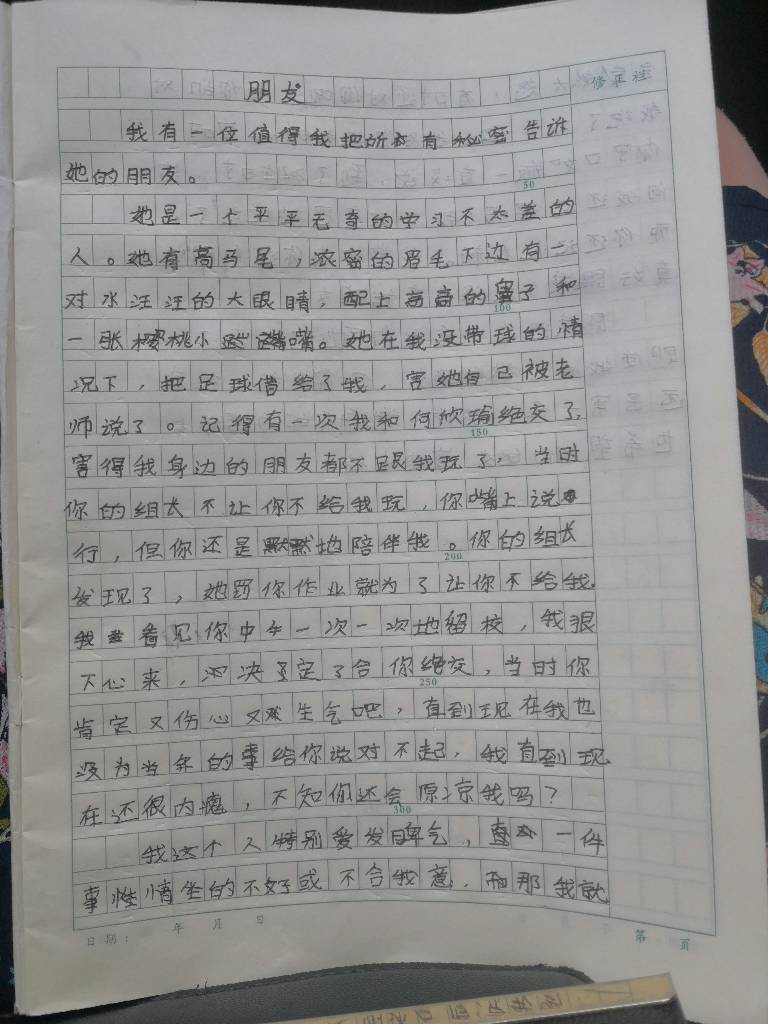 朋友
修正栏
我有一位值得我把所有秘密告诉
她的朋友。
50
她是一个平平无奇的学习不太差的
人。她有高马尾，浓密的眉毛下边有一
对水汪汪的大眼睛，配上高高的鼻子和
100
一张樱桃小嘴。她在我没带球的情
况下，把足球借给了我，害她自己被老
师说了。记得有一次我和何欣瑜绝交了，
150
害得我身边的朋友都不跟我玩了，当时
你的组长不让你不给我玩，你嘴上说
行，但你还是默默地陪伴我。你的组长
200
发现了，她罚你作业就为了让你不给我
我看见你中午一次一次地留校，我狠
下心来，决定了合你绝交，当时你
250
肯定又伤心又生气吧，直到现在我也
没为当年的事给你说对不起，我直到现
在还很内疚，不知你还会原凉我吗？
300
我这个人特别爱发脾气，一件
事情坐的不好或不合我意，那我就
日期： 年 月 日
第 页